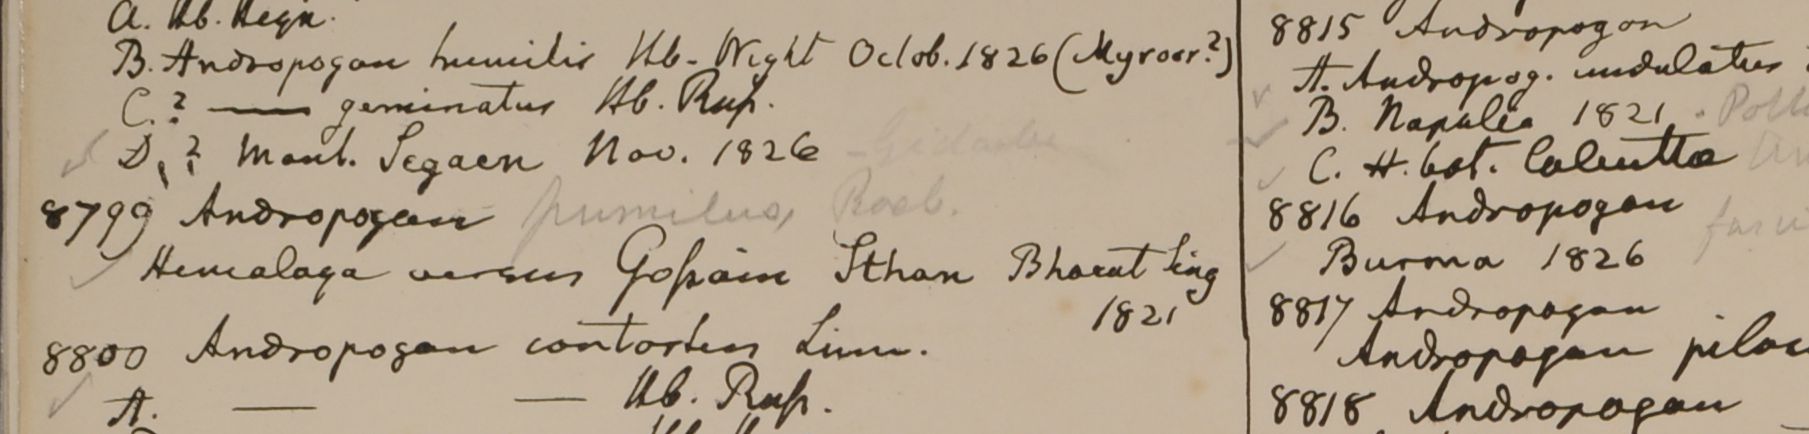 A. Hb. Heyn.
B. Andropogon humilis Hb. Wight Octob. 1826 (Mysoor?)
C.? —— geminatus Hb. Rup.
D.? Mont. Segaen Nov. 1826
8799 Andropogon pumilus, Roxb.
Hemalaya versus Gossain Sthan Bharut Sing
1821
8800 Andropogon contortus Linn.
A. — — Hb. Rup.
8815 Andropogon
A. Andropog. undulatus
B. Napalia 1821
C. H. bot. Calcutta
8816 Andropogon
Burma 1826
8817 Andropogon
Andropogon
8818 Andropogon